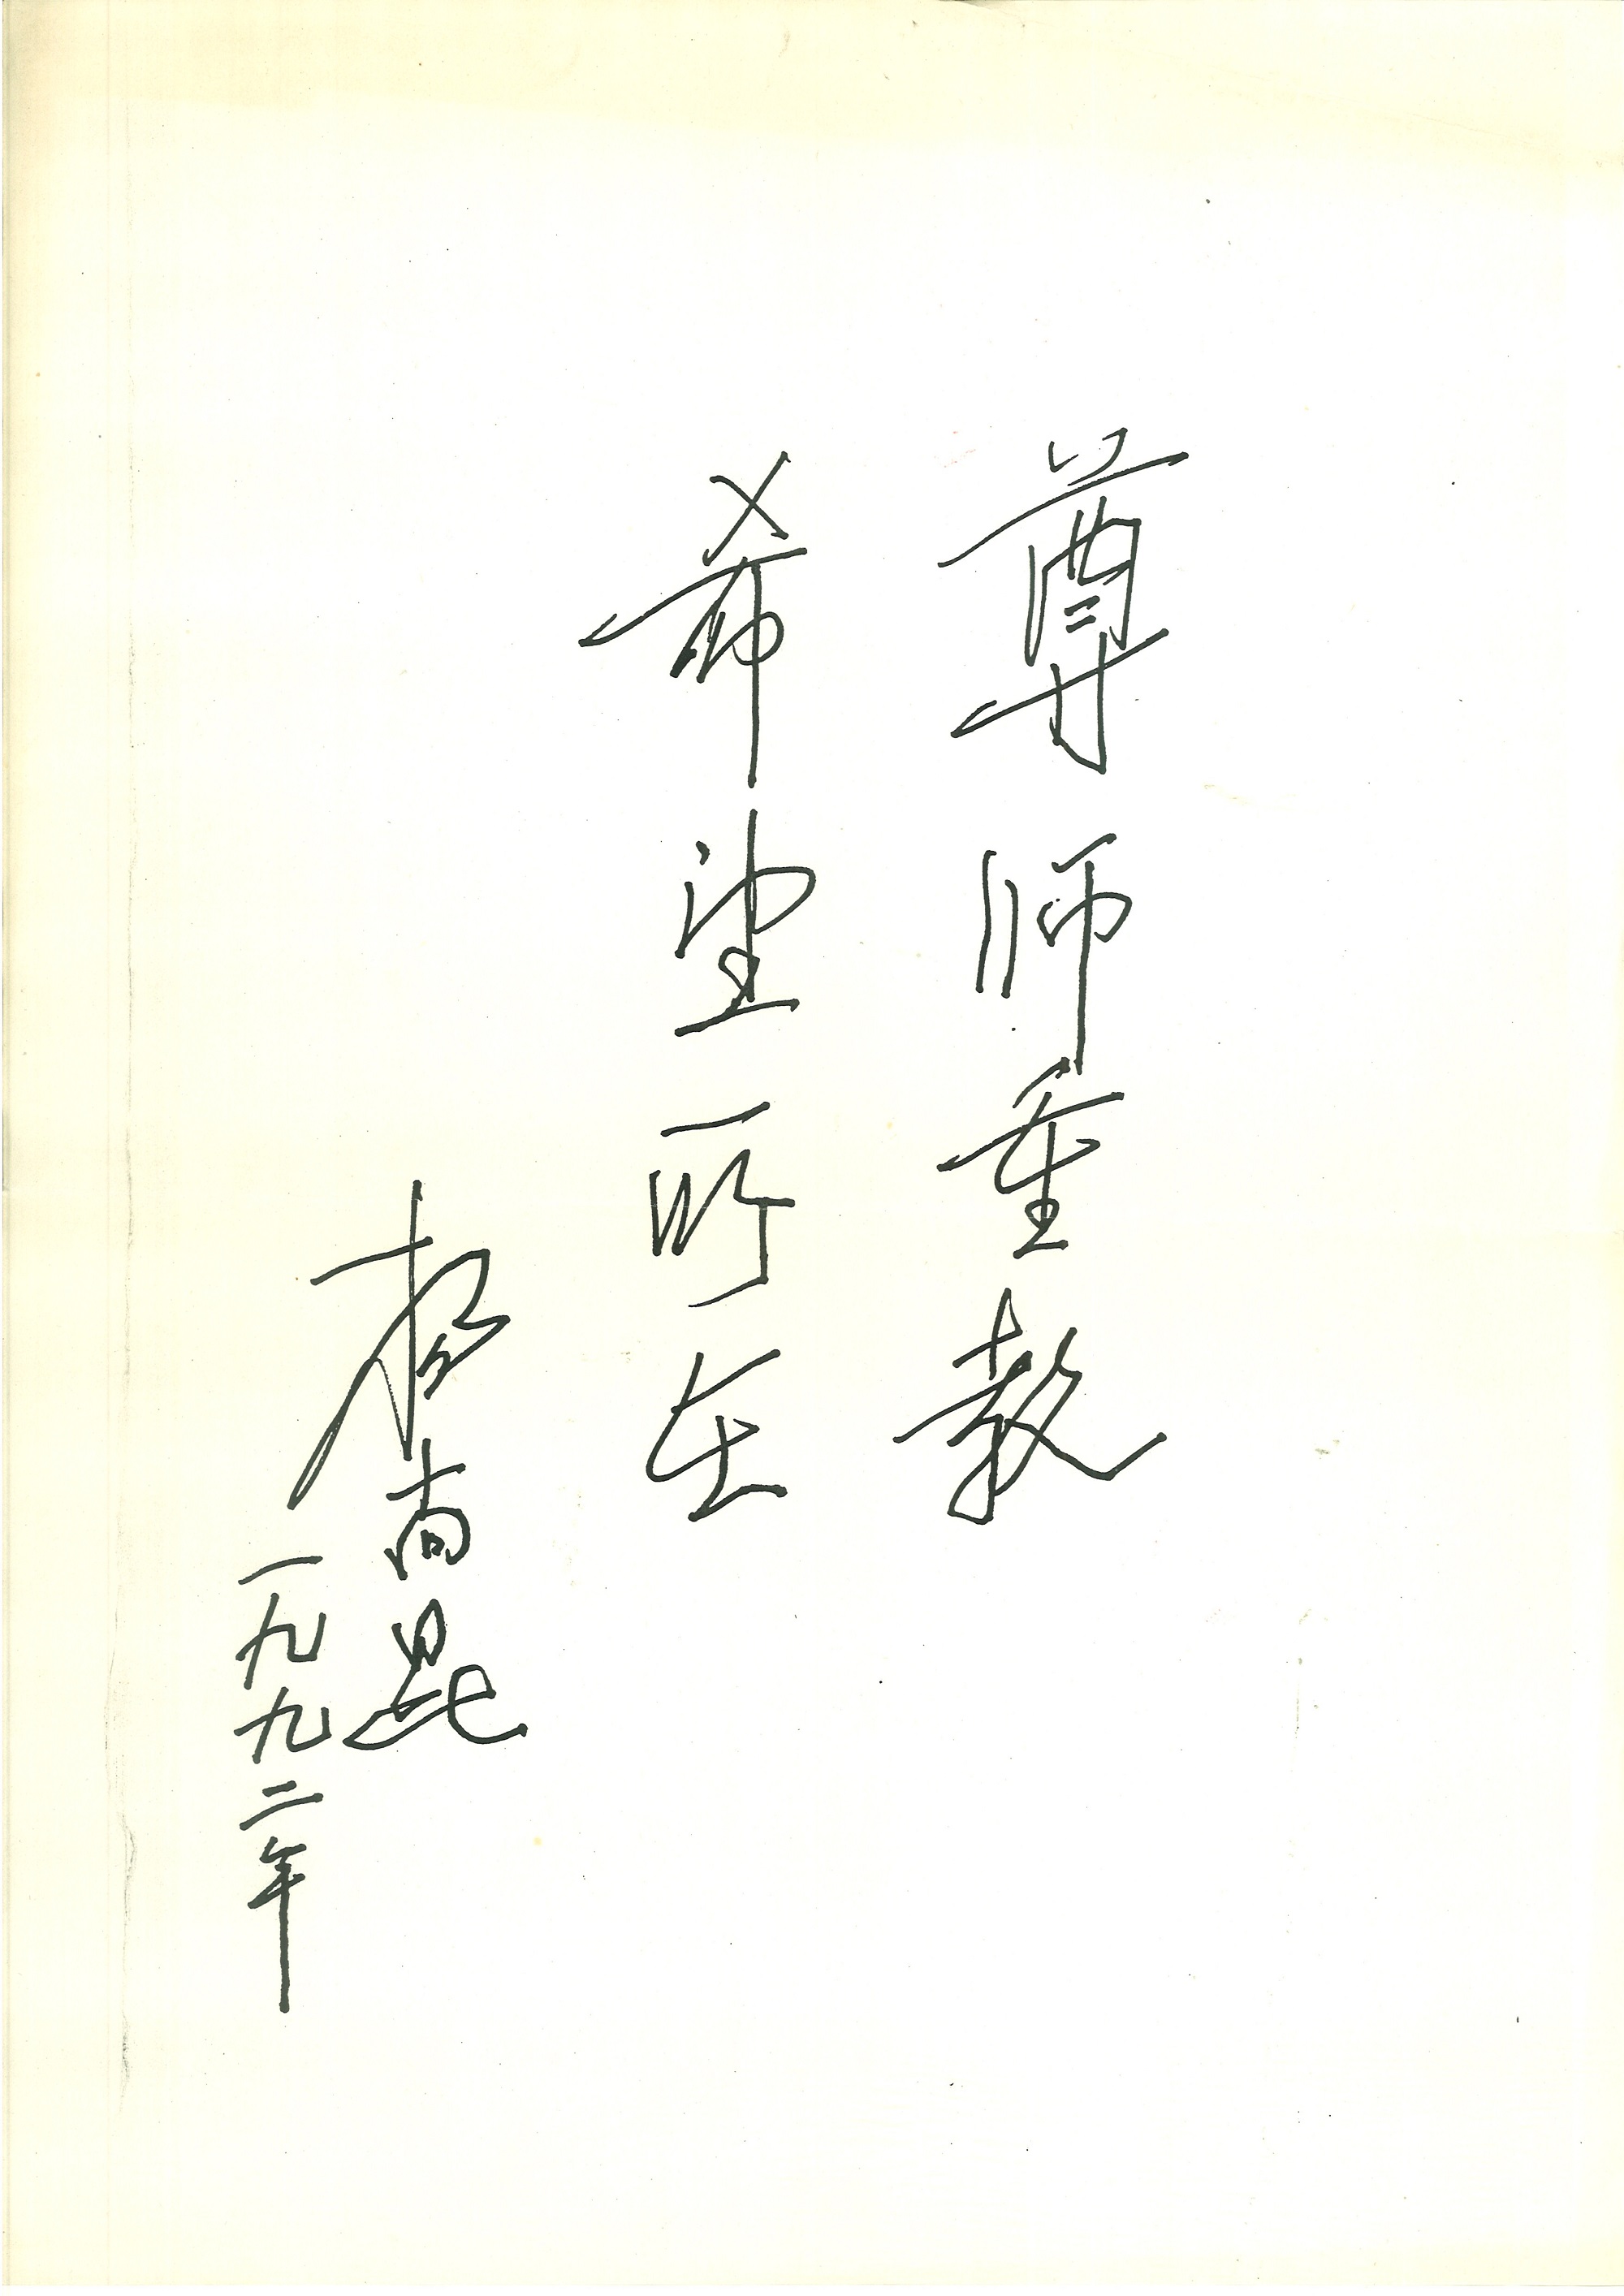 尊师重教
希望所在
杨尚昆
一九九二年